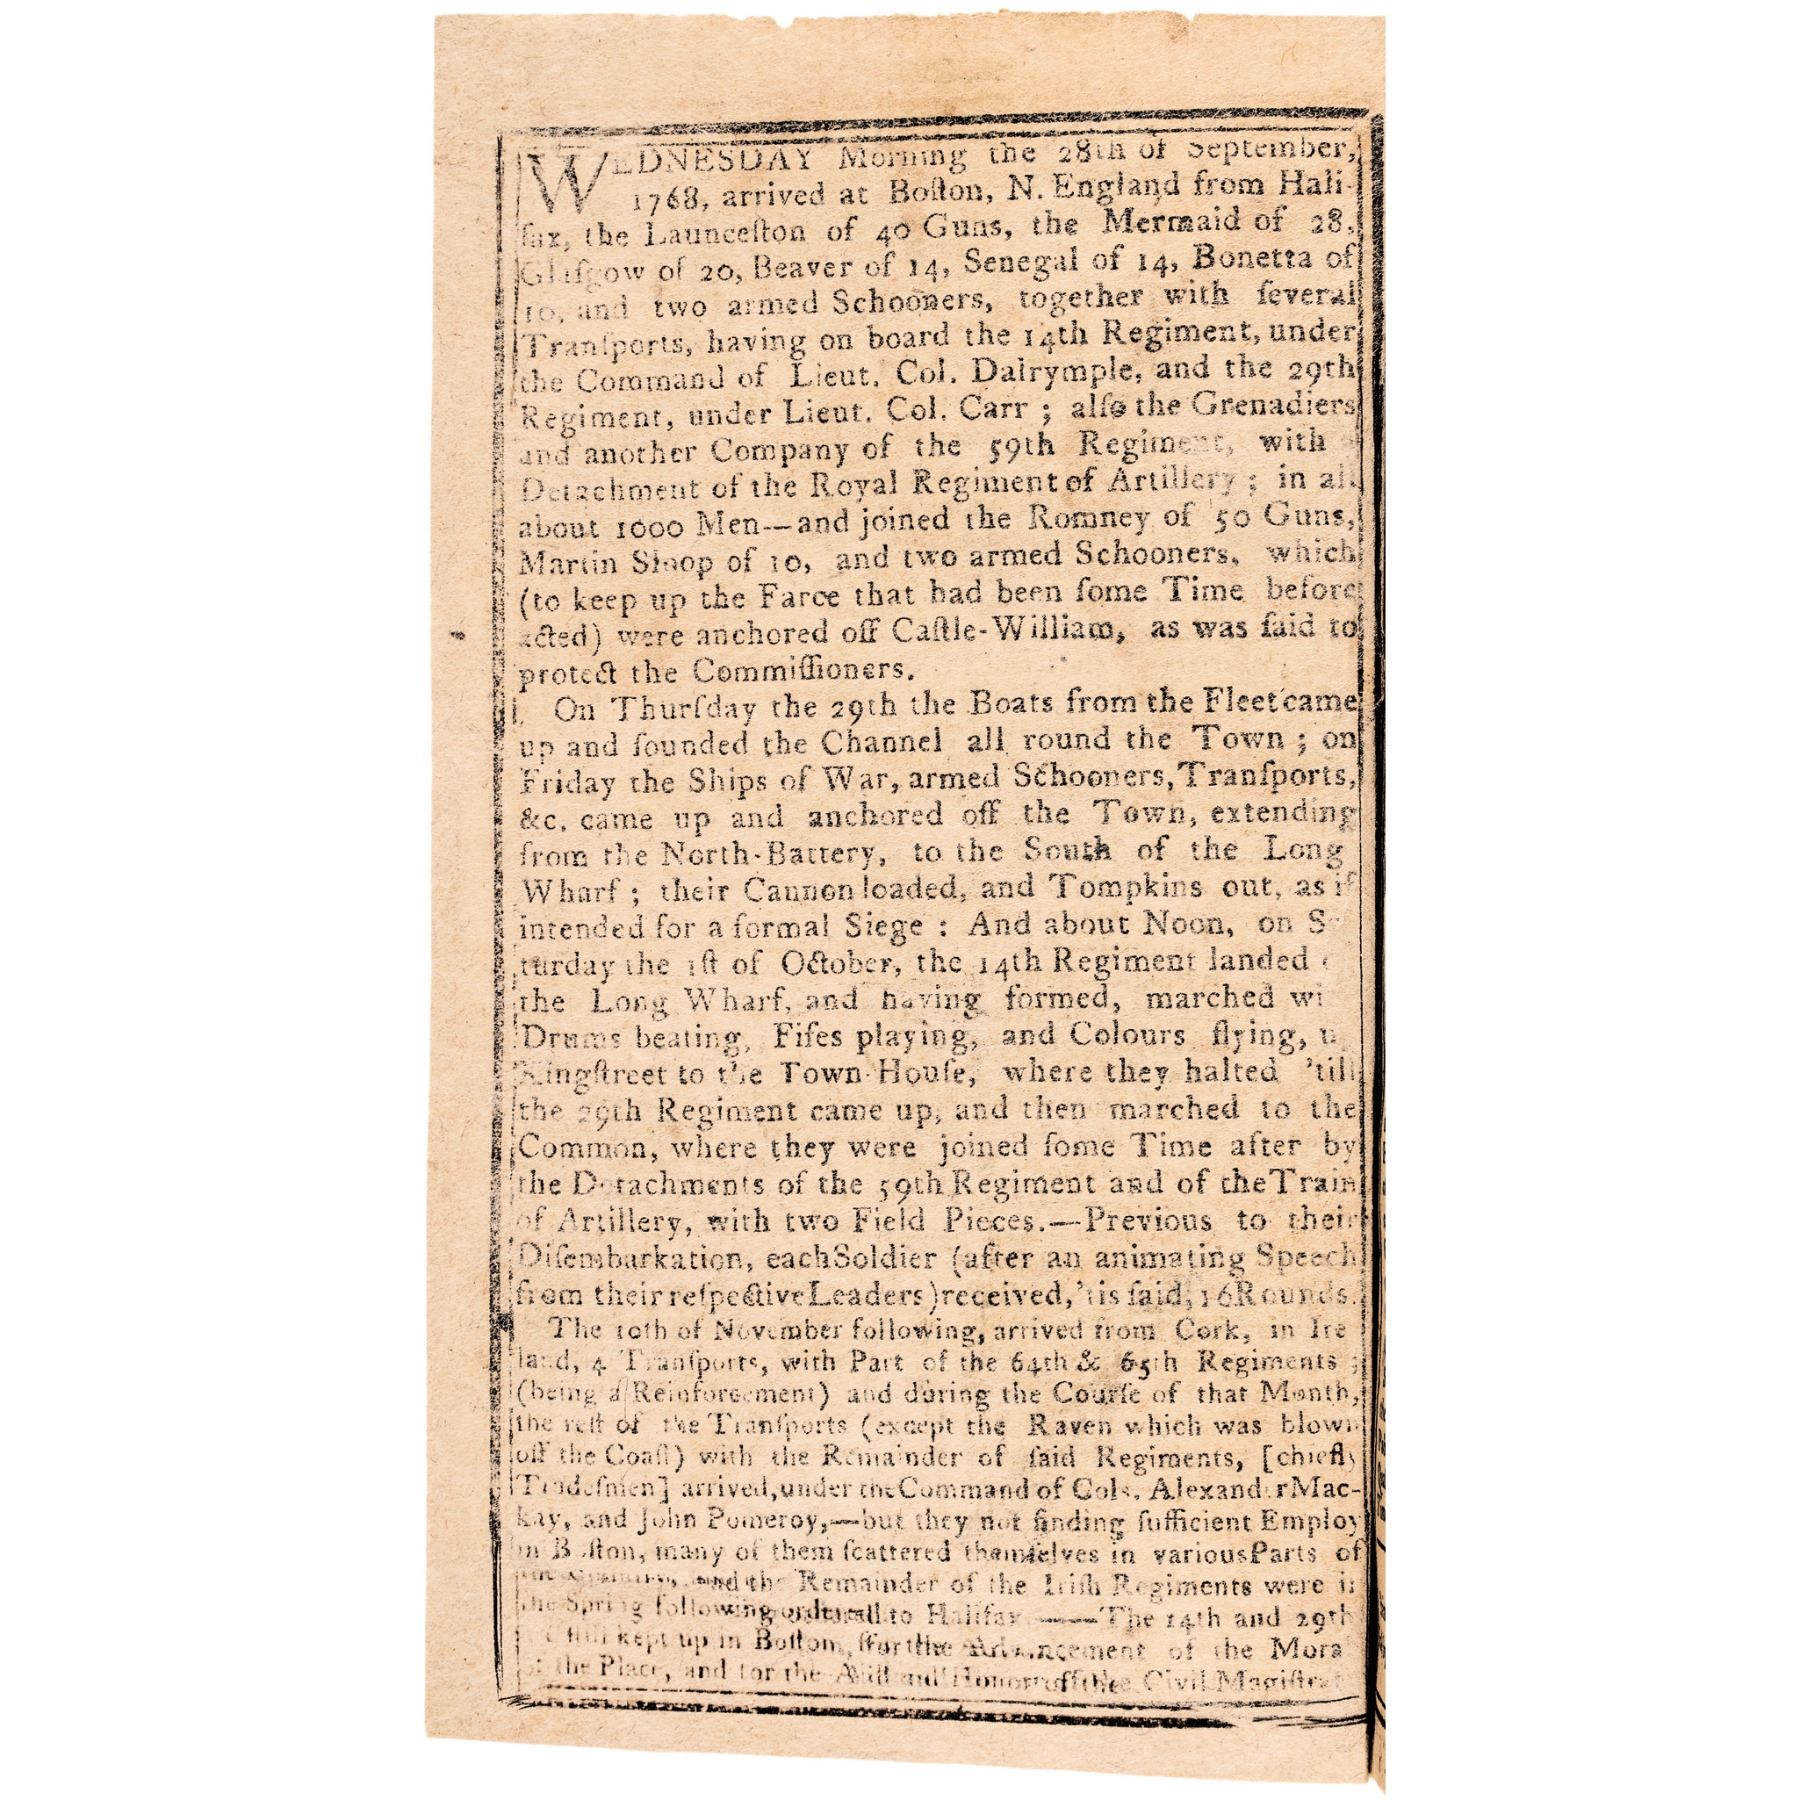 WEDNESDAY Morning the 28th of September,
1768, arrived at Boſton, N. England from Hali-
fax, the Launceſton of 40 Guns, the Mermaid of 28,
Glaſgow of 20, Beaver of 14, Senegal of 14, Bonetta of
10, and two armed Schooners, together with ſeveral
Tranſports, having on board the 14th Regiment, under
the Command of Lieut. Col. Dalrymple, and the 29th
Regiment, under Lieut. Col. Carr ; alſo the Grenadiers
and another Company of the 59th Regiment, with
Detachment of the Royal Regiment of Artillery ; in all
about 1000 Men--—and joined the Romney of 50 Guns,
Martin Sloop of 10, and two armed Schooners, which
(to keep up the Farce that had been ſome Time before
acted) were anchored off Caſtle-William, as was ſaid to
protect the Commiſſioners.
On Thurſday the 29th the Boats from the Fleet came
up and ſounded the Channel all round the Town ; on
Friday the Ships of War, armed Schooners, Tranſports,
&c. came up and anchored off the Town, extending
from the North-Battery, to the South of the Long
Wharf ; their Cannon loaded, and Tompkins out, as if
intended for a formal Siege : And about Noon, on S
turday the 1ſt of October, the 14th Regiment landed
the Long Wharf, and having formed, marched wi
Drums beating, Fifes playing, and Colours flying, u
Kingſtreet to the Town-Houſe, where they halted 'till
the 29th Regiment came up, and then marched to the
Common, where they were joined ſome Time after by
the Detachments of the 59th Regiment and of the Train
of Artillery, with two Field Pieces.—Previous to their
Diſembarkation, each Soldier (after an animating Speech
from their reſpective Leaders) received, 'tis ſaid, 16 Rounds.
The 10th of November following, arrived from Cork, in Ire
land, 4 Tranſports, with Part of the 64th & 65th Regiments ;
(being a Reinforcement) and during the Courſe of that Month,
the reſt of the Tranſports (except the Raven which was blown
off the Coaſt) with the Remainder of ſaid Regiments, [chiefly
Tradeſmen] arrived, under the Command of Cols. Alexander Mac-
kay, and John Pomeroy,—but they not finding ſufficient Employ
in Boſton, many of them ſcattered themſelves in various Parts of
the Country, and the Remainder of the Iriſh Regiments were in
the Spring following ordered to Halifax.——The 14th and 29th
ſtill kept up in Boſton, for the Advancement of the Mora
of the Place, and for the Aid and Honor of the Civil Magiſtrat